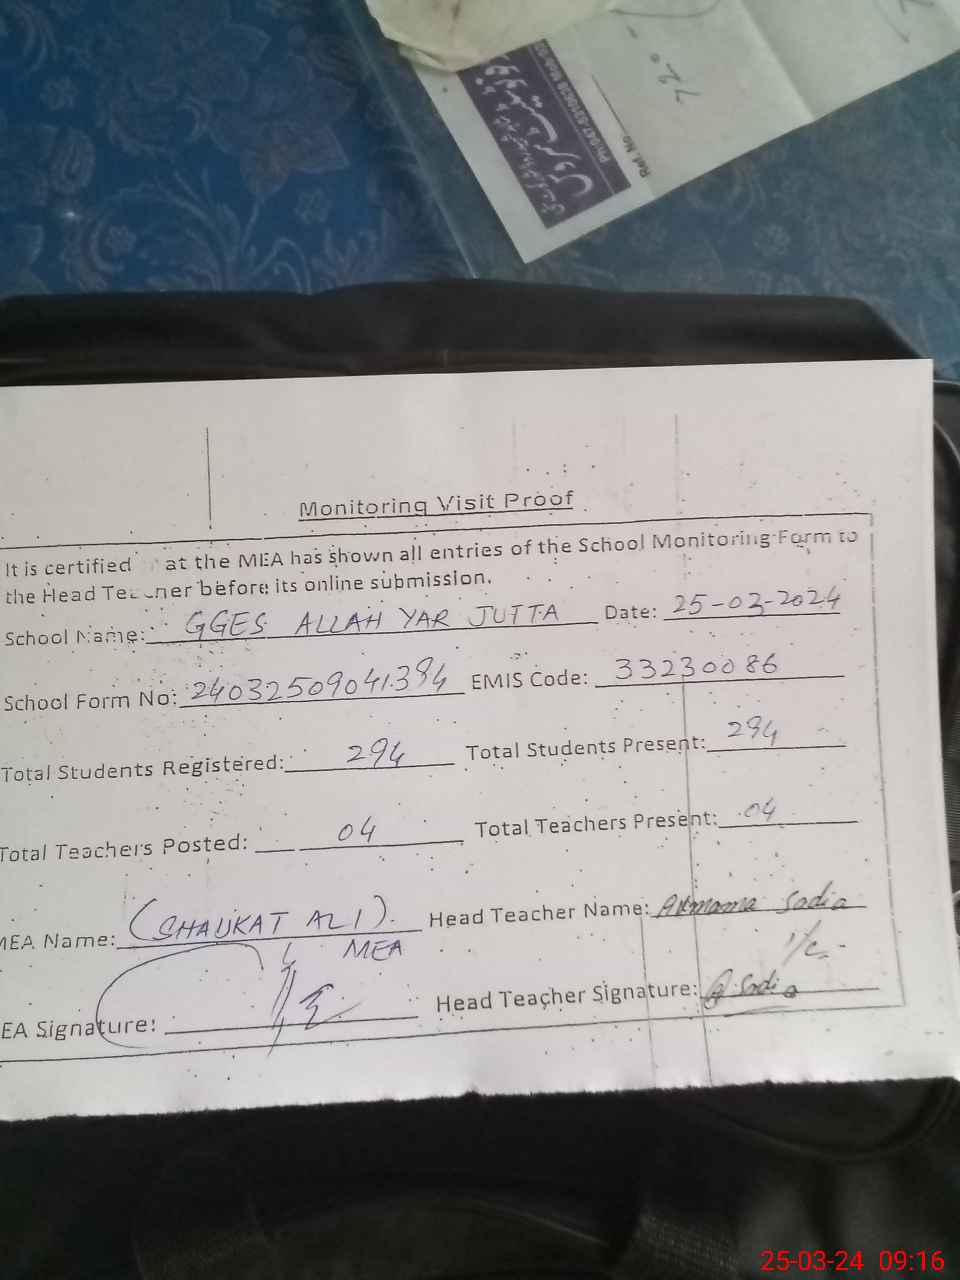 Ref. No
Ph:047-5310838 Mob:03
720
Monitoring Visit Proof
It is certified at the MEA has shown all entries of the School Monitoring Form to
the Head before its online submission.
School Name: GGES ALLAH YAR JUTTA Date: 25-03-2024
School Form No: 24032509041394 EMIS Code: 33230086
Total Students Registered: 294 Total Students Present: 294
Total Teachers Posted: 04 Total Teachers Present: 04
MEA Name: (SHAUKAT ALI). Head Teacher Name: Sadia
MEA I/C
EA Signature: Head Teacher Signature: Sadia
25-03-24 09:16